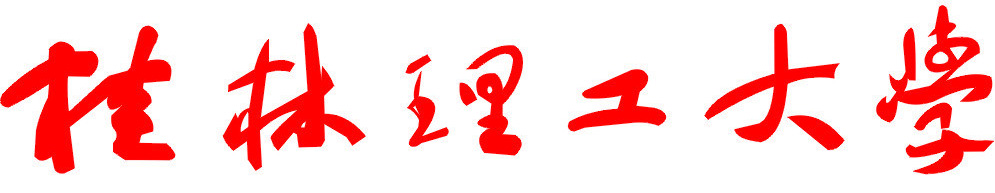 桂林理工大学